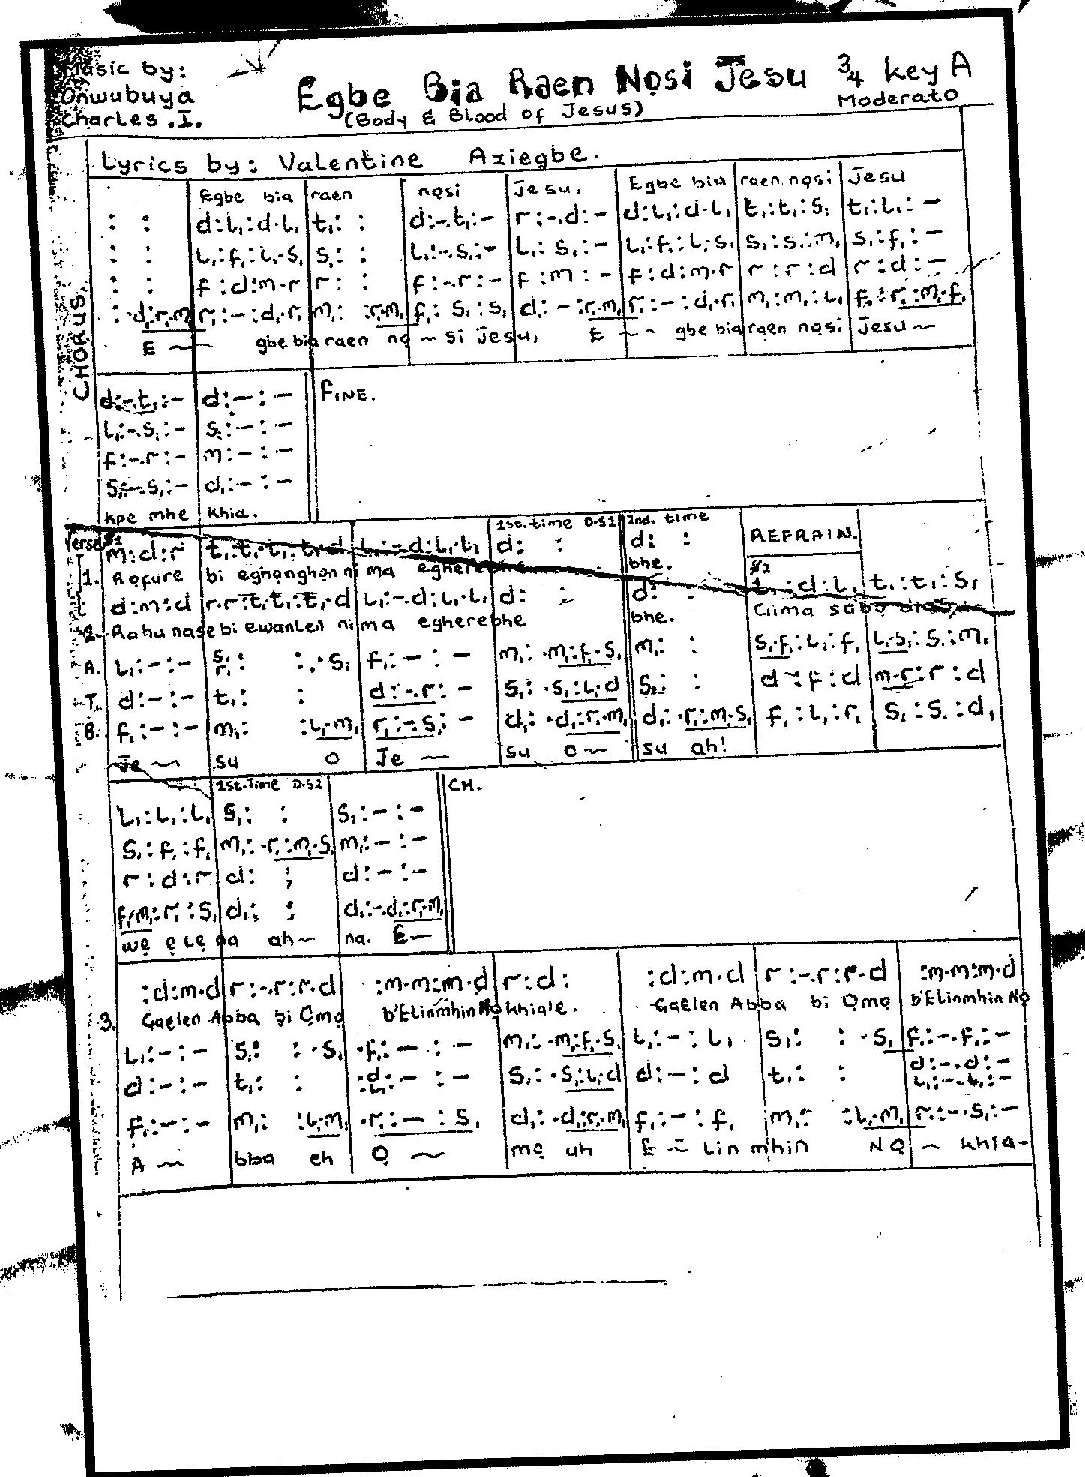 Music by:
Onwubuya
Charles .I.
Egbe Bia Raen Nọsi Jesu 3/4 key A
(Body & Blood of Jesus) Moderato
Lyrics by: Valentine Aziegbe.
CHORUS
Egbe bia raen nọsi Jesu. Egbe bia raen nọsi Jesu
: : d:l,:d.l, t,: : d:-.t,:- r:-.d:- d:l,:d.l, t,:t,:s, t,:l,:-
: : l,:f,:l,.s, s,: : l,:-.s,:- l,:s,:- l,:f,:l,.s, s,:s,:m, s,:f,:-
: : f:d:m.r r: : f:-.r:- f:m:- f:d:m.r r:r:d r:d:-
: .d,:r,.m, r,:-:d,.r, m,: :r,.m, f,:s,:s, d,:-:r,.m, r,:-:d,.r, m,:m,:l, f,:r,:m,.f,
E ~ gbe bia raen nọ ~ si Jesu, E ~ ~ gbe bia raen nọsi Jesu ~
d:-.t,:- d:-:- FINE.
l,:-.s,:- s,:-:-
f:-.r:- m:-:-
s,:-.s,:- d,:-:-
kpe mhe khia.
1st. time D.S1 2nd. time REFRAIN.
Verse m:d:r d: : d: :
1. Rẹfure bi eghọnghọn ni ma bhe.
d:m:d r.r:t,.t,:t,.d l,:-.d:l,.l, d: : d: :
2. Rahunase bi ewanlen ni ma egherebhe bhe.
A. l,:-:- f,:-:- m,:.m,:f,.s, m,: : s,.f,:l,:f, l,.s,:s,:m,
T. d:-:- t,: : d:-.r:- s,:.s,:l,.d s,: : d:f:d m.r:r:d
B. f,:-:- m,: :l,.m, r,:-.s,:- d,:.d,:r,.m, d,:.r,:m,.s, f,:l,:r, s,:s,:d,
Je ~ su o Je ~ su o ~ su ah!
1st. time D.S2 CH.
l,:l,:l, s,: : s,:-:-
s,:f,:f, m,:.r,:m,.s, m,:-:-
r:d:r d: : d:-:-
f,.m,:r,:s, d,: : d,:-.d,:r,.m,
wẹ ẹlẹ na ah ~ na. E ~
:d:m.d r:-.r:r.d :m.m:m.d r:d: :d:m.d r:-.r:r.d :m.m:m.d
3. Gaelen Abba bi Ọmọ b'Elinmhin Nọ khiale. Gaelen Abba bi Ọmọ b'Elinmhin Nọ
l,:-:- s,: :.s, .f,:-:- m,:.m,:f,.s, l,:-:l, s,: :.s, f,:-.f,:-
d:-:- t,: : s,:.s,:l,.d d:-:d t,: : d:-.d:-
f,:-:- m,: :l,.m, .r,:-:s, d,:.d,:r,.m, f,:-:f, m,: :l,.m, r,:-.s,:-
A ~ bba eh Ọ ~ mọ uh E ~ lin mhin NỌ ~ khia-